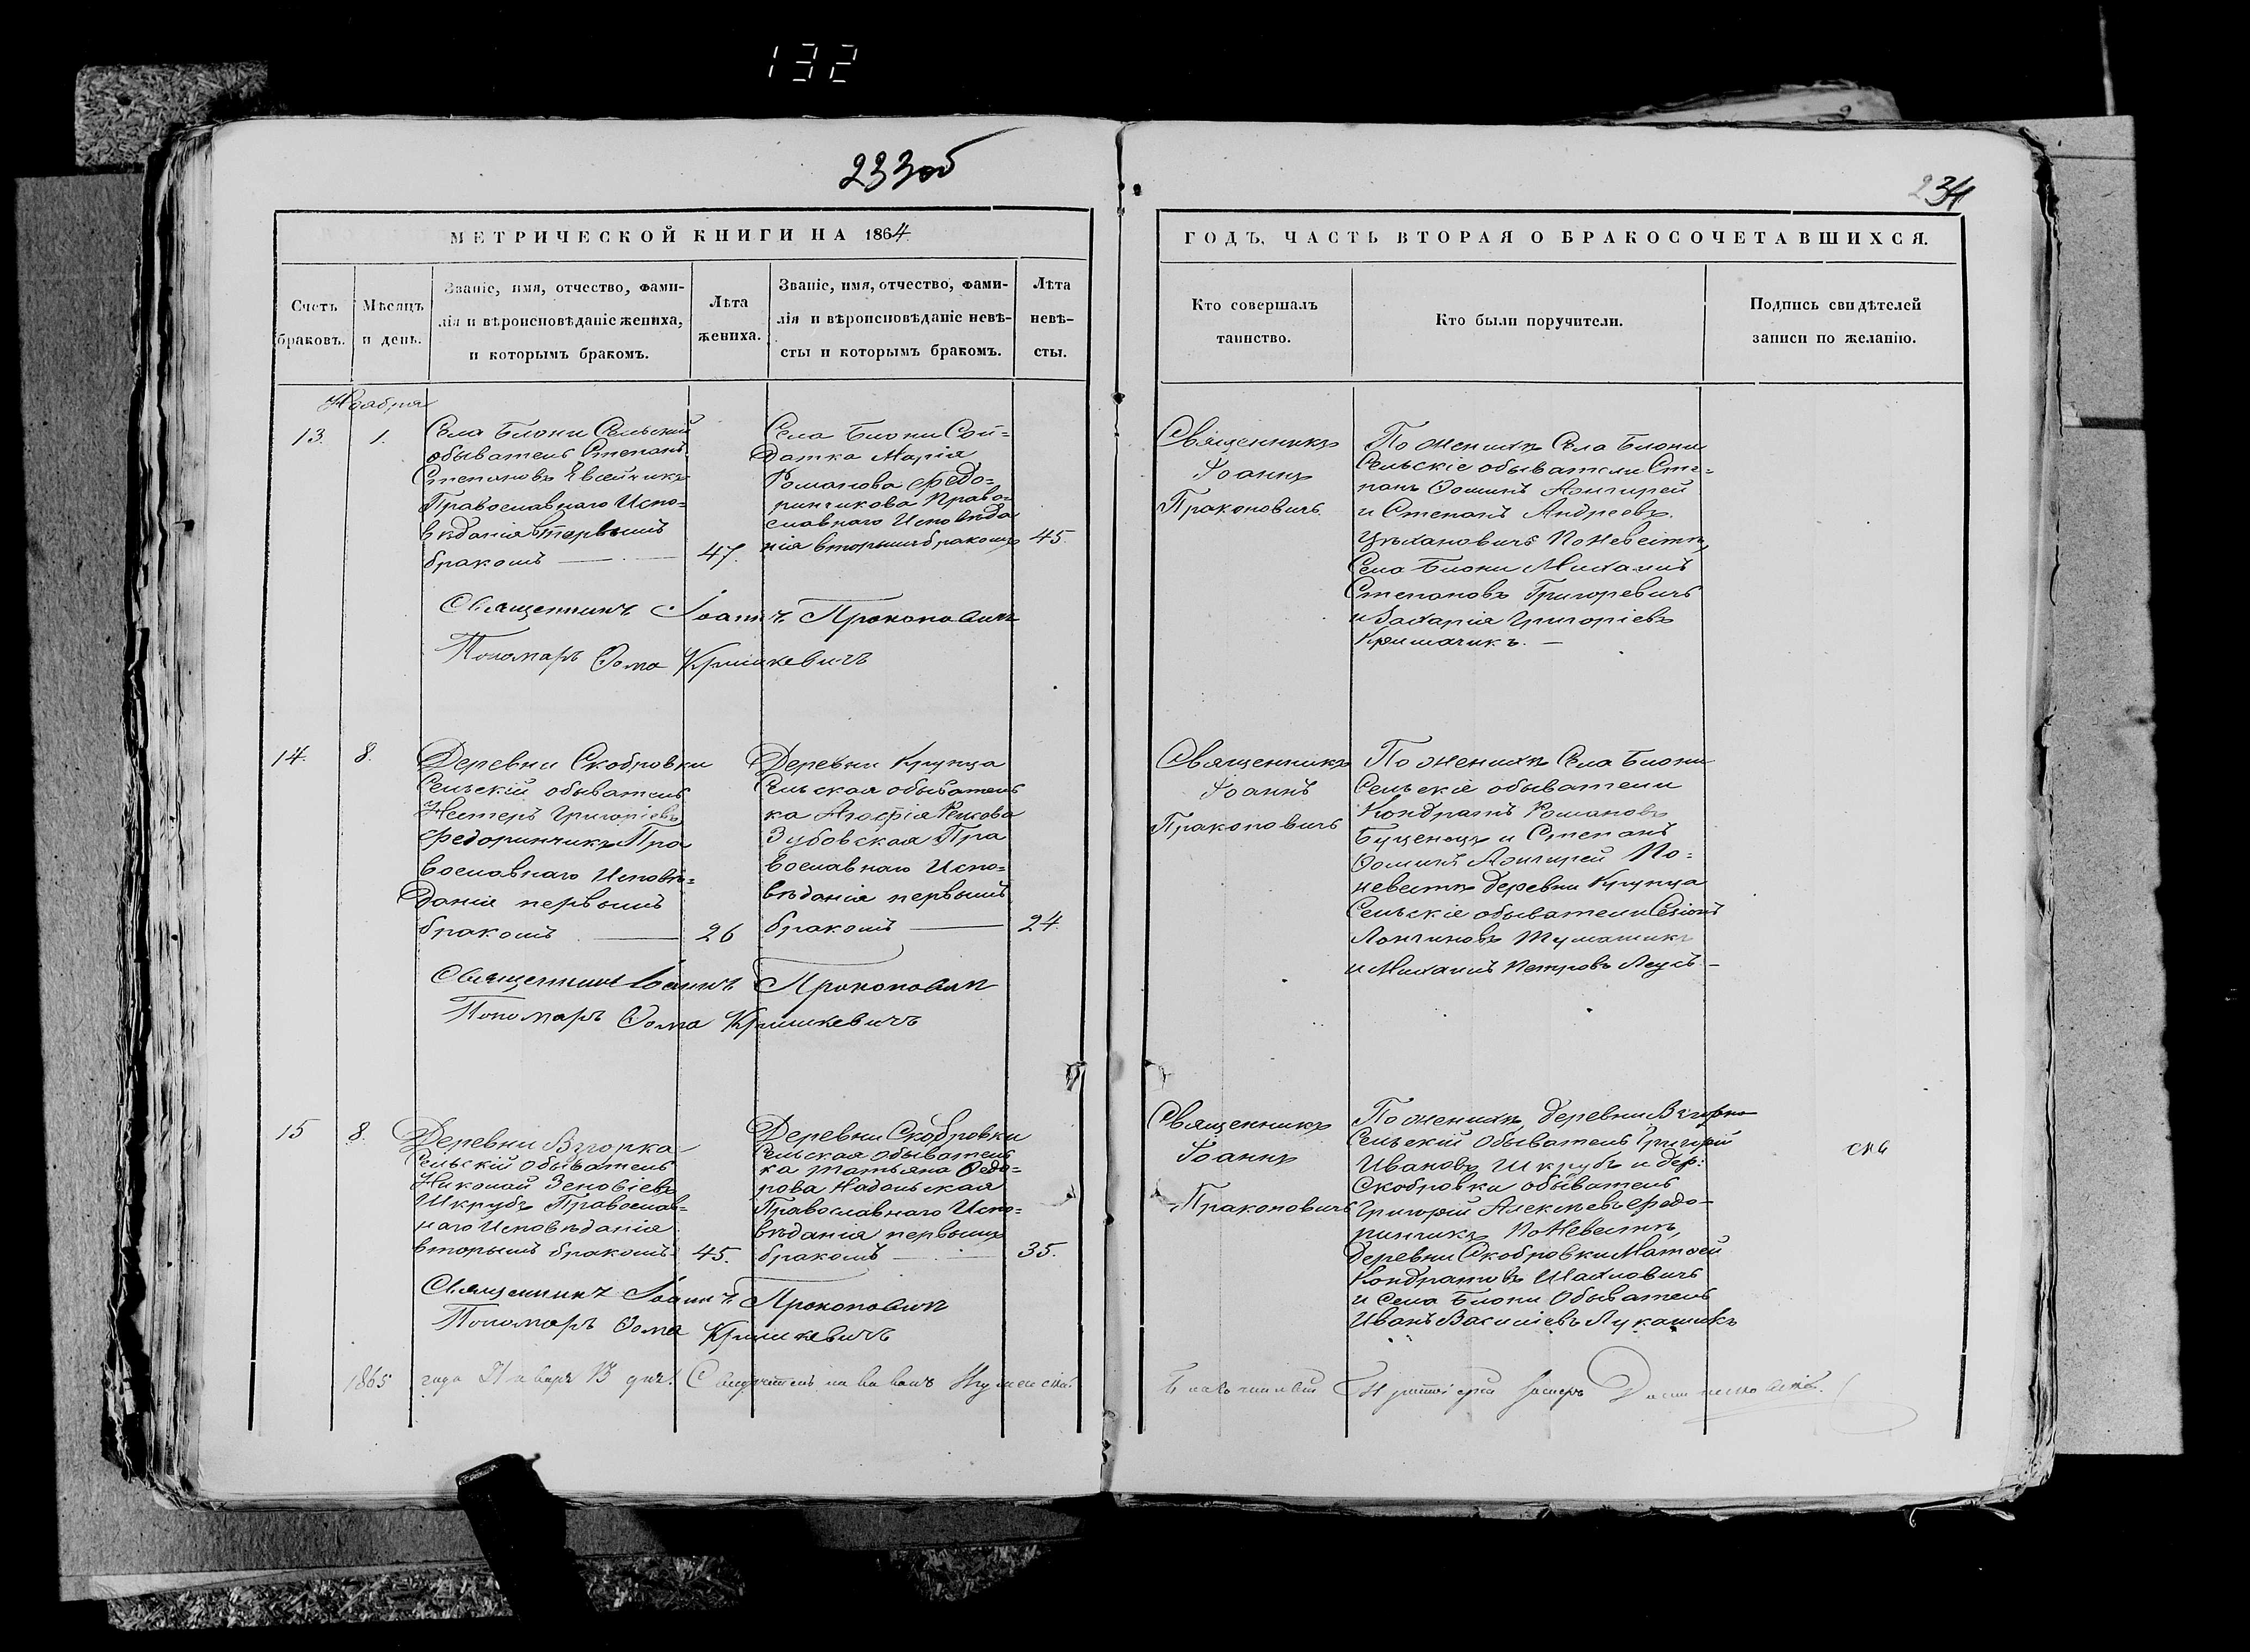 132
233об
234
МЕТРИЧЕСКОЙ КНИГИ НА 1864
ГОДЪ, ЧАСТЬ ВТОРАЯ О БРАКОСОЧЕТАВШИХСЯ.
Счетъ
браковъ.
Мѣсяцъ
и день.
Званіе, имя, отчество, фами-
лія и вѣроисповѣданіе жениха,
и которымъ бракомъ.
Лѣта
жениха.
Званіе, имя, отчество, фами-
лія и вѣроисповѣданіе невѣ-
сты и которымъ бракомъ.
Лѣта
невѣ-
сты.
Кто совершалъ
таинство.
Кто были поручители.
Подпись свидѣтелей
записи по желанію.
Ноября
13.
1.
Села Блони Сельскій
обыватель Степанъ
Степановъ
Православнаго Испо-
вѣданія первымъ
бракомъ
47.
Села Блони Сол-
датка Марія
Романова Федо-
ринчикова Право-
славнаго Исповѣда
нія вторымъ бракомъ
45.
Священникъ
Іоаннъ
Праконовичъ
По женихѣ Села Блони
Сельскіе обыватели Сте-
панъ Ѳоминъ
и Степанъ Андреевъ
Цѣхановичъ По Невестѣ
Села Блони Михаилъ
Степановъ Григоревичъ
и Захарія Григоріевъ
Священникъ Іоаннъ Прокоповичъ
Пономарь Ѳома Кришкевичъ
14.
8.
Деревни Скобровки
Сельскій обыватель
Нестеръ Григоріевъ
Федоринчикъ Пра
вославнаго Исповѣ-
данія первымъ
бракомъ
26
Деревни Крупца
Сельская обыватель
ка
Зубовская Пра
вославнаго Испо-
вѣданія первымъ
бракомъ
24.
Священникъ
Іоаннъ
Праконовичъ
По женихѣ Села Блони
Сельскіе обыватели
Кондратъ Романовъ
и Степанъ
Ѳоминъ По-
невестѣ деревни Крупца
Сельскіе обыватели
и Михаилъ Петровъ
Священникъ Іоаннъ Прокоповичъ
Пономарь Ѳома Кришкевичъ
15
8.
Деревни Взгорка
Сельскій обыватель
Николай Зеновіевъ
Шкрубъ Православ-
наго Исповѣданія
вторымъ бракомъ
45.
Деревни Скобровки
Сельская обыватель
ка Татьяна Ѳедо-
рова Надольская
Православнаго Испо-
вѣданія первымъ
бракомъ
35.
Священникъ
Іоаннъ
Праконовичъ
По женихѣ деревни Взгорка
Сельскій обыватель Григорій
Ивановъ Шкрубъ и дер:
Скобровки обыватель
Григорій Алексѣевъ Федо-
ринчикъ По Невестѣ
Деревни Скобровки Матѳей
Кондратовъ
и Села Блони обыватель
Иванъ Василіевъ Лукашикъ
Священникъ Іоаннъ Прокоповичъ
Пономарь Ѳома Кришкевичъ
1865 года Января 13 дня.